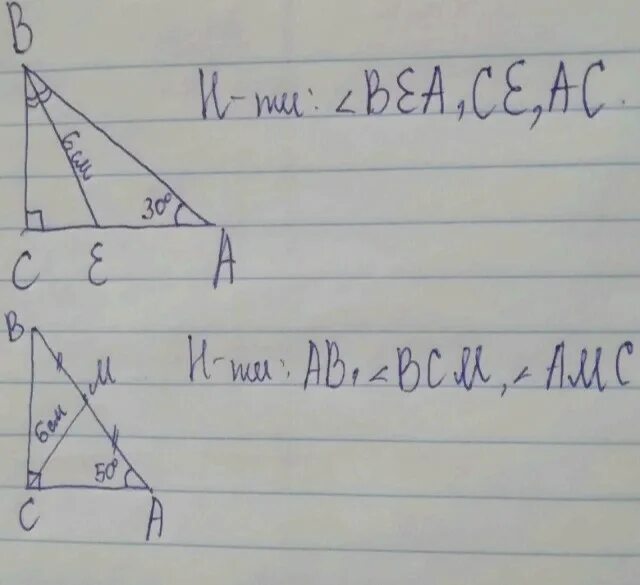 B
Н-ти: ∠BEA, CE, AC.
6см
30°
C E A
B
Н-ти: AB, ∠BCM, ∠AMC
M
6см
50°
C A